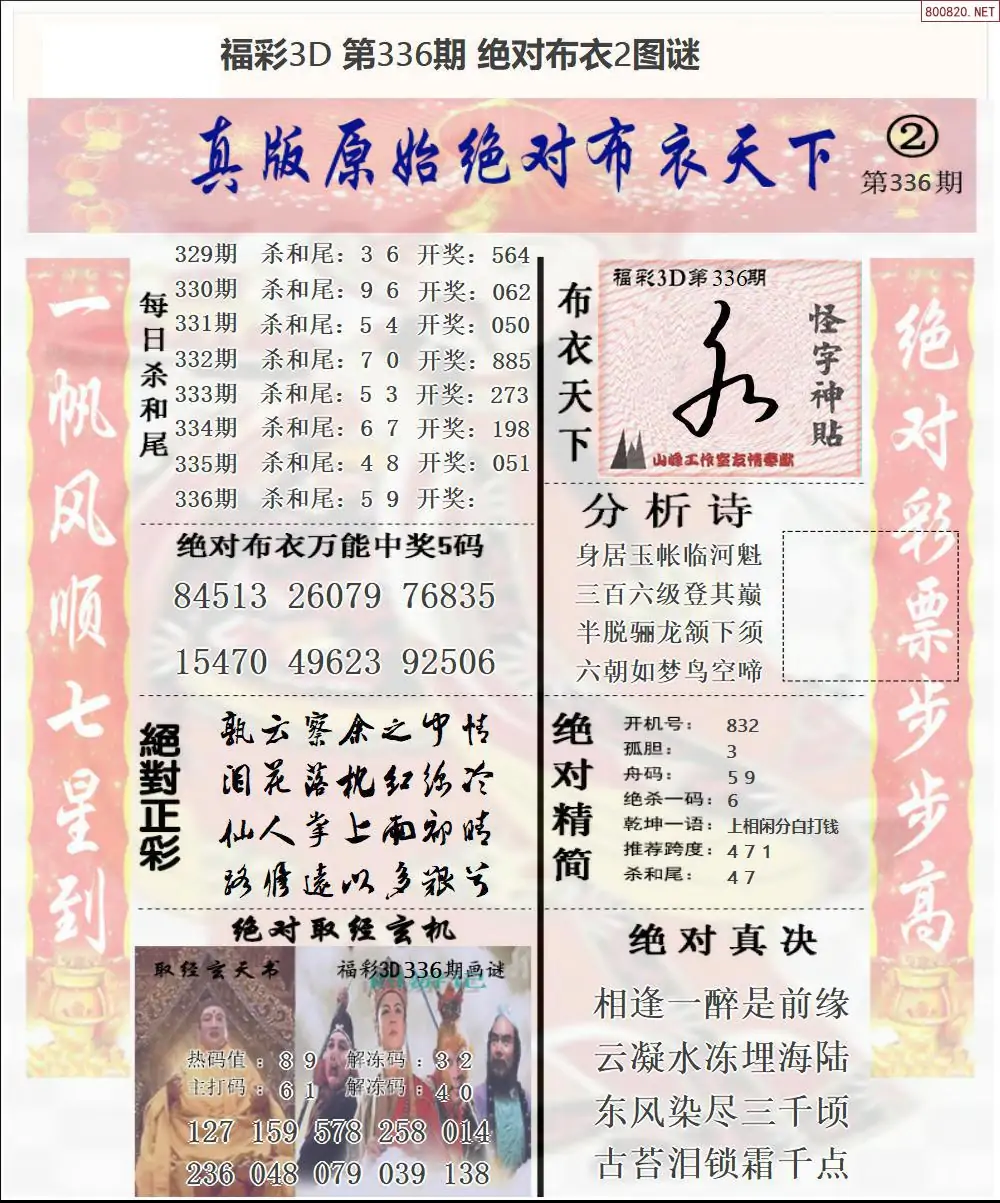 800820.NET
福彩3D 第336期 绝对布衣2图谜
真版原始绝对布衣天下
②
第336期
一帆风顺七星到
每日杀和尾
329期 杀和尾：3 6 开奖：564
330期 杀和尾：9 6 开奖：062
331期 杀和尾：5 4 开奖：050
332期 杀和尾：7 0 开奖：885
333期 杀和尾：5 3 开奖：273
334期 杀和尾：6 7 开奖：198
335期 杀和尾：4 8 开奖：051
336期 杀和尾：5 9 开奖：
绝对布衣万能中奖5码
84513 26079 76835
15470 49623 92506
絕對正彩
孰云察余之中情
泪花落枕红绵冷
仙人掌上雨初晴
路脩遠以多艱兮
绝对取经玄机
取经玄天书
福彩3D336期画谜
热码值：8 9 解冻码：3 2
主打码：6 1 解冻码：4 0
127 159 578 258 014
236 048 079 039 138
布衣天下
福彩3D第336期
怪字神贴
山峰工作室友情奉献
分析诗
身居玉帐临河魁
三百六级登其巅
半脱骊龙颔下须
六朝如梦鸟空啼
绝对精简
开机号： 832
孤胆： 3
舟码： 5 9
绝杀一码：6
乾坤一语：上相闲分白打钱
推荐跨度：4 7 1
杀和尾： 4 7
绝对真决
相逢一醉是前缘
云凝水冻埋海陆
东风染尽三千顷
古苔泪锁霜千点
绝对彩票步步高